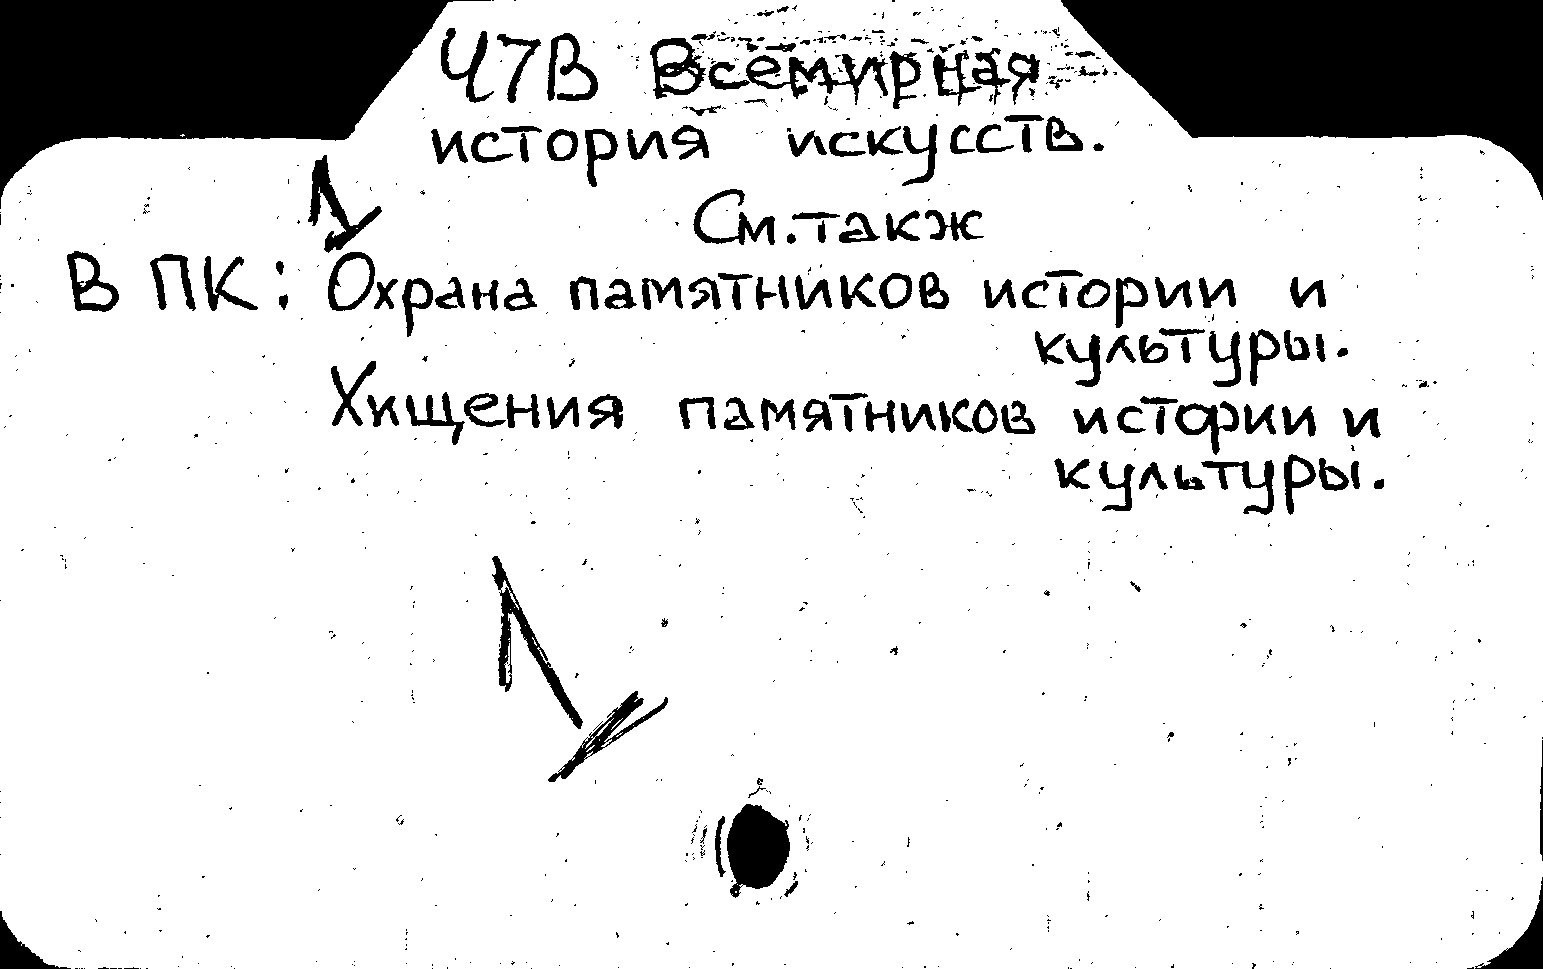 Ч7В Всемирная
история искусств.
См. такж
В ПК: Охрана памятников истории и
культуры.
Хищения памятников истории и
культуры.